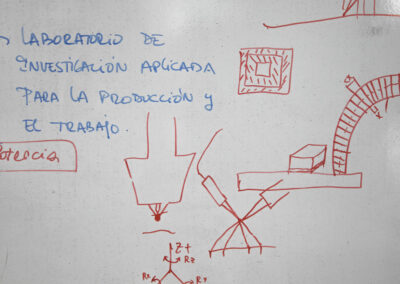 LABORATORIO DE
INVESTIGACIÓN APLICADA
PARA LA PRODUCCIÓN Y
EL TRABAJO.
Potencia
Z+
R Rz
Rx Ry